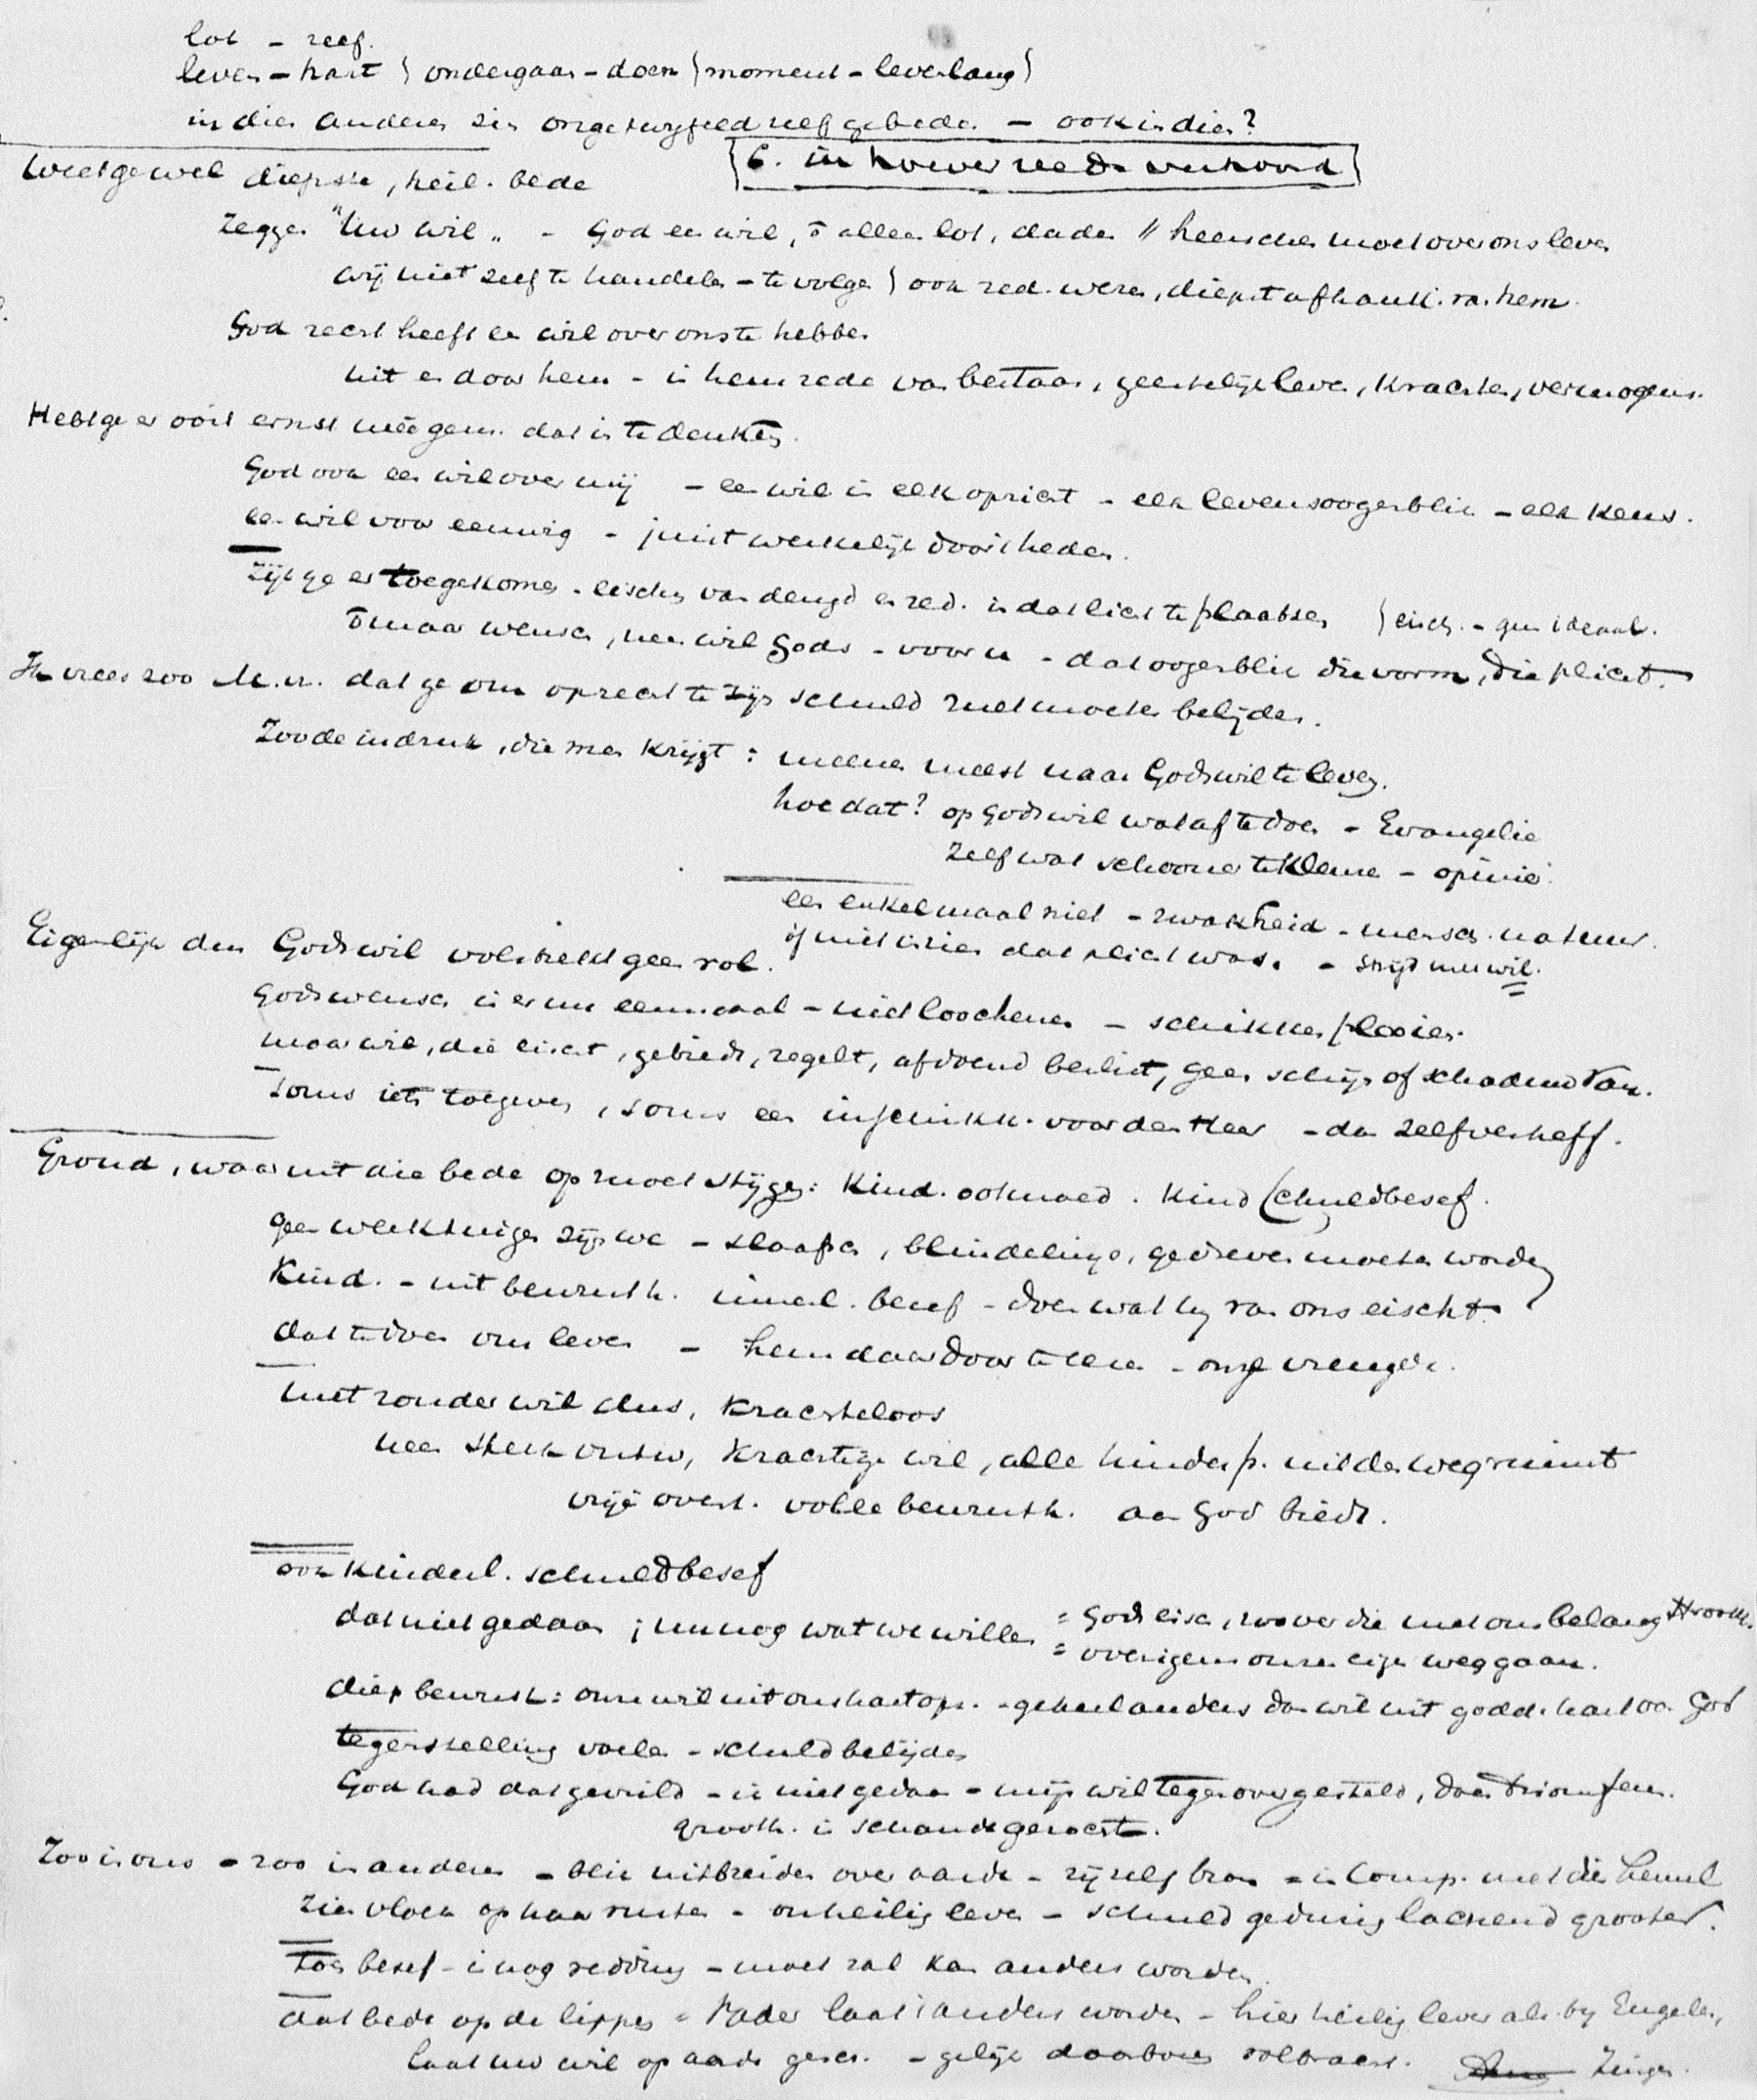 lot - zelf.
leven - hart } ondergaan - doen } moment - levenlang }
in dien anderen zin ongetwijfeld zelf gebeden - ook in dien?
6. in hoever reeds verhoord
Weet ge wel diepste, heil. bede
Zeggen "Uw wil" - God een wil, allen lot, daden // heerschen moet over ons leven
wij niet zelf te handelen - te volgen } ook red. wezen, diepst afhank. van hem.
God recht heeft een wil over ons te hebben
uit en door hem - in hem rede van bestaan, geestelijk leven, krachten, vermogens.
Hebt ge er ooit ernst mêe gem. dat in te denken.
God ook een wil over mij - een wil in elk opzicht - elk levensoogenblik - elk keus.
een wil voor eeuwig - juist werkelijk door heden.
Zijt ge er toe gekomen - eischen van deugd en red. in dat licht te plaatsen } eisch. - geen ideaal.
maar wensch, neen wil Gods - voor u - dat oogenblik die vorm, die plicht.
Ik vrees zoo M. H. dat ge om oprecht te zijn schuld zult moeten belijden.
Zoo de indruk, die men krijgt: meenen meest naar Gods wil te leven.
hoe dat? op Gods wil wat af te doen - Evangelie
Zelf wat schooner te kleuren - opinie.
een enkel maal niet - zwakheid - mensch. natuur.
of niet inzien dat plicht was. - strijd met wil.
Eigenlijk dan Gods wil volstrekt geen rol.
Gods wensch is er nu eenmaal - niet loochenen - schikken plooien.
maar wil, die eischt, gebiedt, regelt, afdoend beslist, geen schijn of schaduw van.
soms iets toegeven, soms een inschikk. voor den Heer - dan zelfverheff.
Grond, waaruit die bede op moet stijgen: Kind. ootmoed. Kind schuldbesef.
geen werktuigen zijn we - slaafsch, blindelings, gedreven moeten worden
Kind. - uit bewusth. innerl. besef - doen wat hij van ons eischt.
dat te doen ons leven - hem daardoor te eeren - onze vreugde.
niet zonder wil dus, krachteloos
neen sterk ontw, krachtige wil, alle hinderp. uit den weg ruimt
vrije overt. volle bewusth. aan God biedt.
ook kinderl. schuldbesef
dat niet gedaan; nu nog wat we willen = Gods eisch, zoover die met ons belang strookt.
= overigens onzen eigen weg gaan.
diep bewust: onze wil uit ons hart op. - geheel anders dan wil uit godd. hart van God
tegenstelling voelen - schuld belijden
God had dat gewild - is niet gedaan - mijn wil tegenover gesteld, doen triomfeeren.
grooth. in schande gezocht.
Zoo in ons - zoo in anderen - blik uitbreiden over aarde - zij zelf bron - in comp. met die hemel
zien vloek op haar rusten - onheilig leven - schuld gedurig lachend grooter.
toch besef - is nog redding - moet zal kan anders worden.
dat bede op de lippen = Vader laat 't anders worden - hier heilig leven als bij Engelen,
laat uw wil op aarde gesch. - gelijk daarboven volbracht. Zingen.